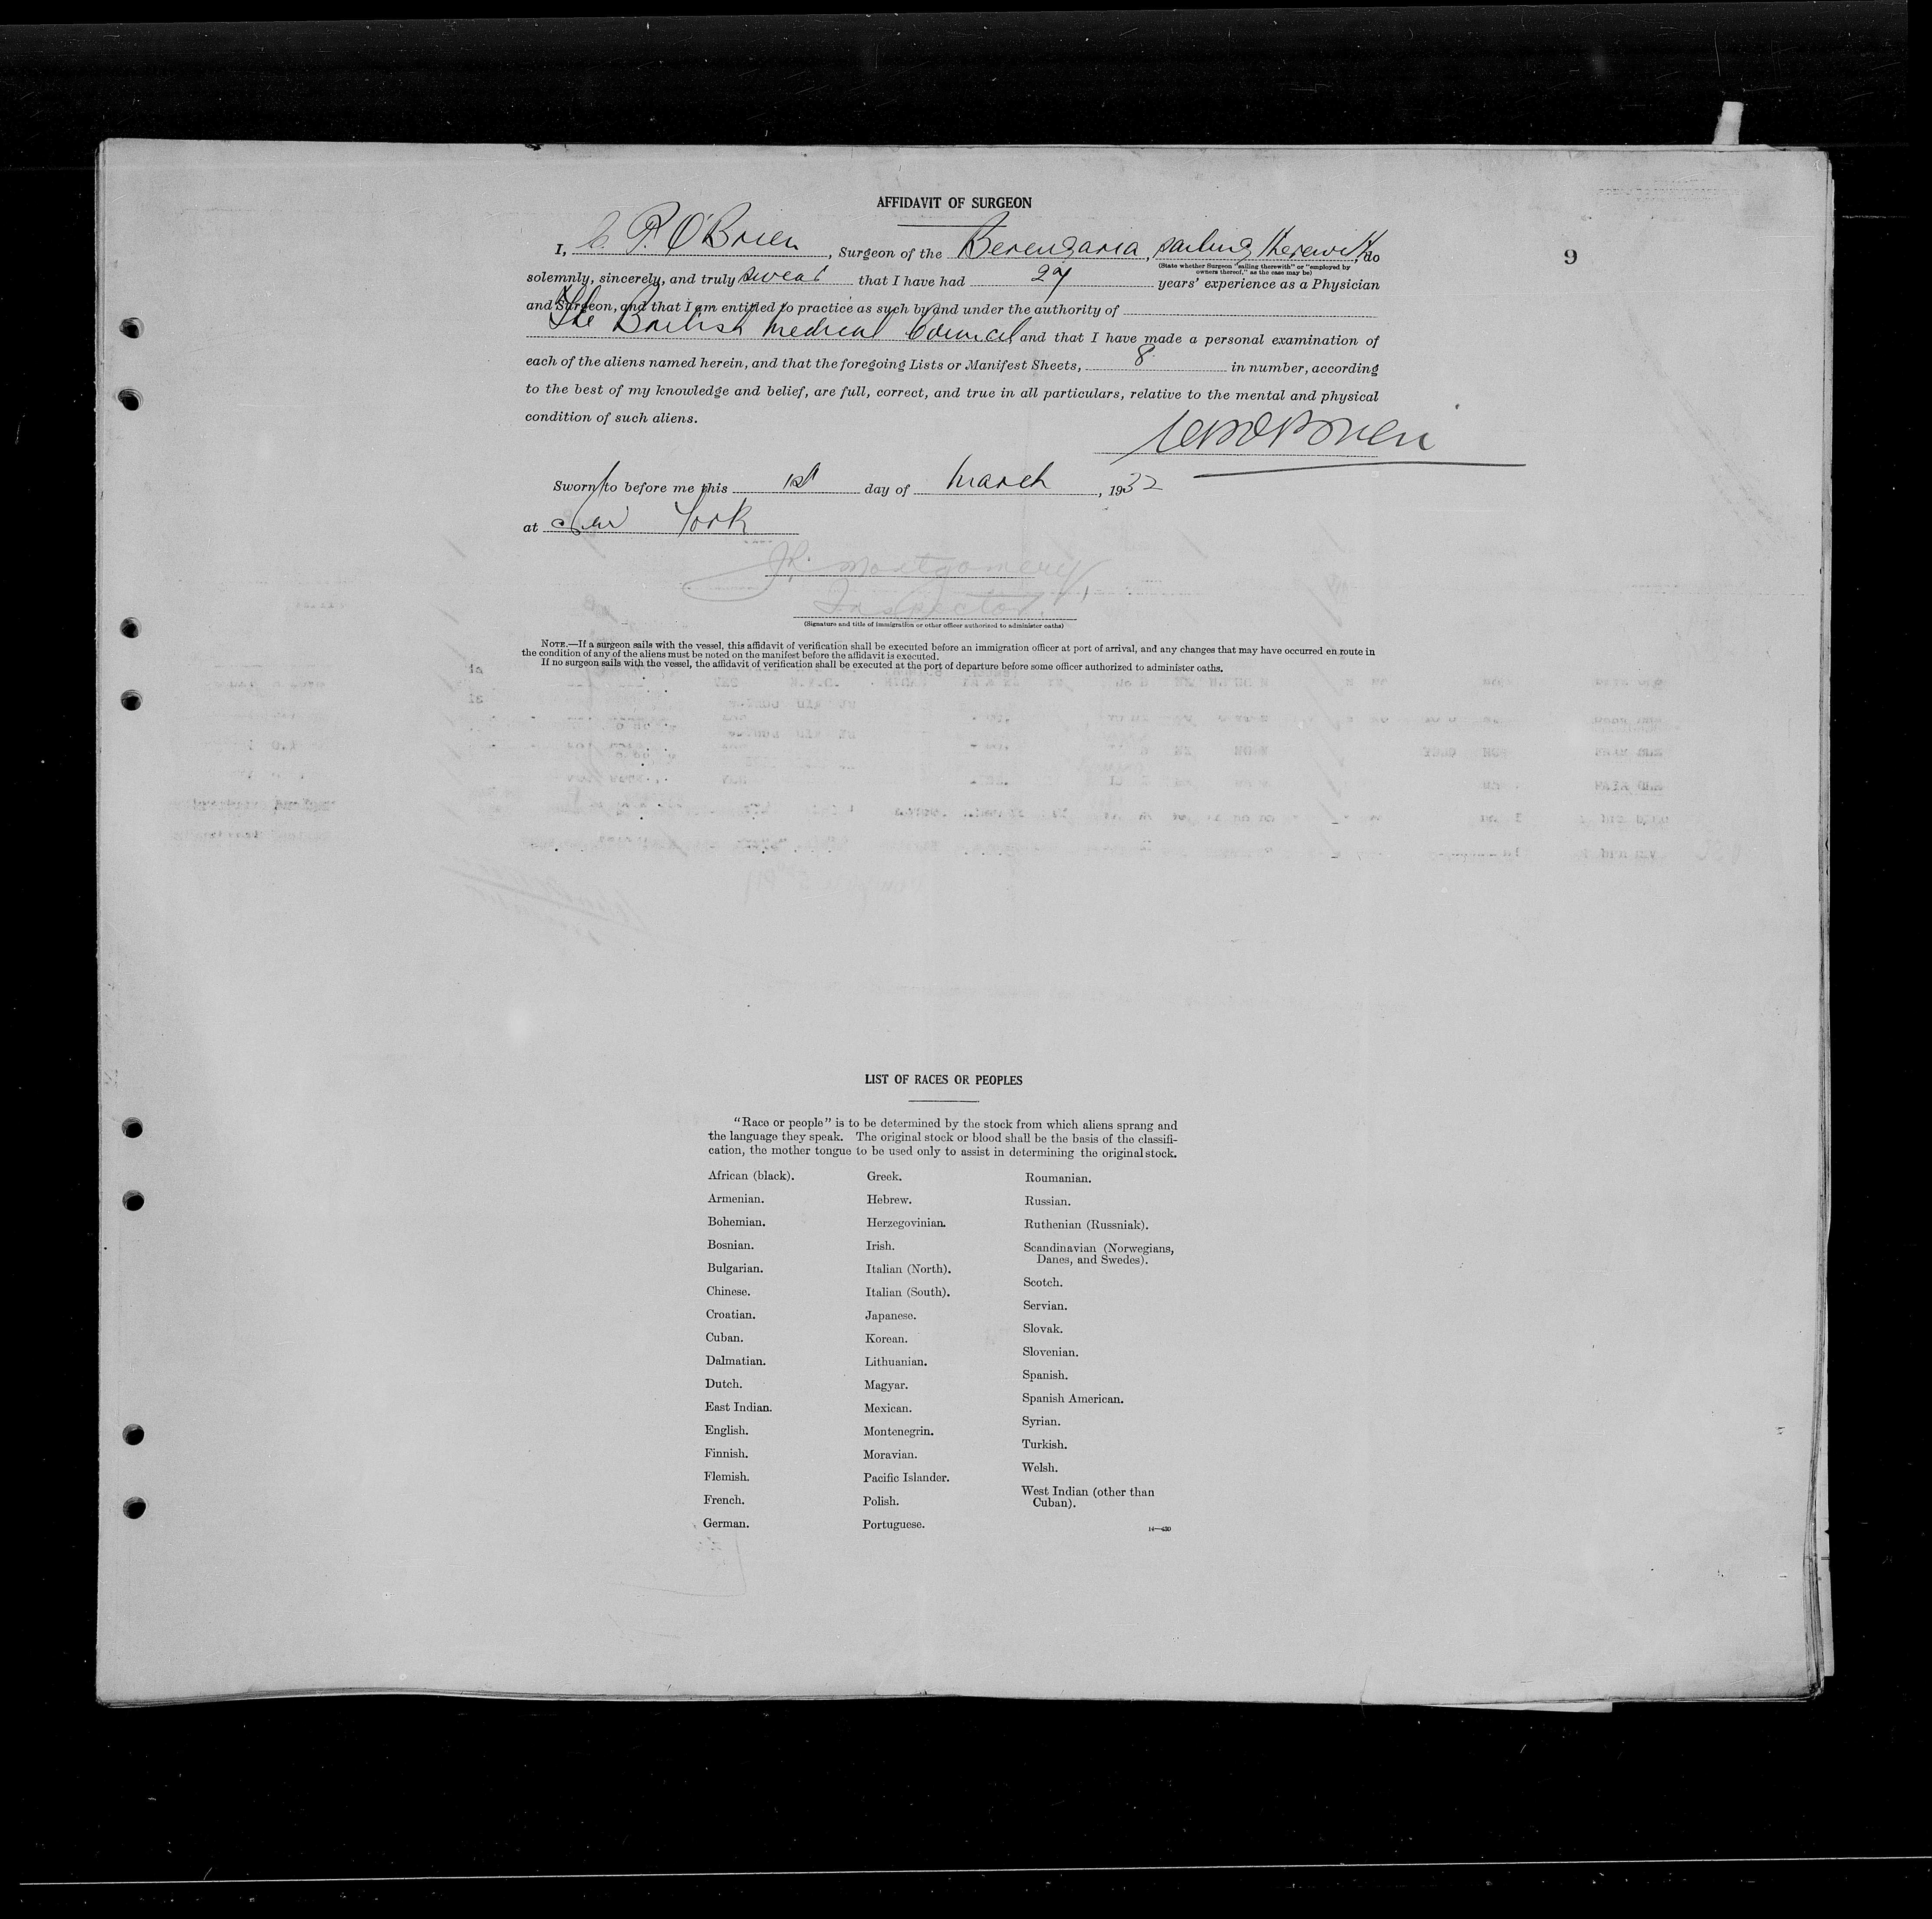 AFFIDAVIT OF SURGEON
I, C. P. O'Brien, Surgeon of the Berengaria, sailing therewith, do
(State whether Surgeon "sailing therewith" or "employed by
owners thereof," as the case may be)
9
solemnly, sincerely, and truly swear that I have had 27 years' experience as a Physician
and Surgeon, and that I am entitled to practice as such by and under the authority of
The British Medical Council and that I have made a personal examination of
each of the aliens named herein, and that the foregoing Lists or Manifest Sheets, 8 in number, according
to the best of my knowledge and belief, are full, correct, and true in all particulars, relative to the mental and physical
condition of such aliens.
Sworn to before me this 1st day of March, 1932
at New York
Montgomery
Inspector.
(Signature and title of immigration or other officer authorized to administer oaths)
NOTE.—If a surgeon sails with the vessel, this affidavit of verification shall be executed before an immigration officer at port of arrival, and any changes that may have occurred en route in
the condition of any of the aliens must be noted on the manifest before the affidavit is executed.
If no surgeon sails with the vessel, the affidavit of verification shall be executed at the port of departure before some officer authorized to administer oaths.
LIST OF RACES OR PEOPLES
"Race or people" is to be determined by the stock from which aliens sprang and
the language they speak. The original stock or blood shall be the basis of the classifi-
cation, the mother tongue to be used only to assist in determining the original stock.
African (black).
Armenian.
Bohemian.
Bosnian.
Bulgarian.
Chinese.
Croatian.
Cuban.
Dalmatian.
Dutch.
East Indian.
English.
Finnish.
Flemish.
French.
German.
Greek.
Hebrew.
Herzegovinian.
Irish.
Italian (North).
Italian (South).
Japanese.
Korean.
Lithuanian.
Magyar.
Mexican.
Montenegrin.
Moravian.
Pacific Islander.
Polish.
Portuguese.
Roumanian.
Russian.
Ruthenian (Russniak).
Scandinavian (Norwegians,
Danes, and Swedes).
Scotch.
Servian.
Slovak.
Slovenian.
Spanish.
Spanish American.
Syrian.
Turkish.
Welsh.
West Indian (other than
Cuban).